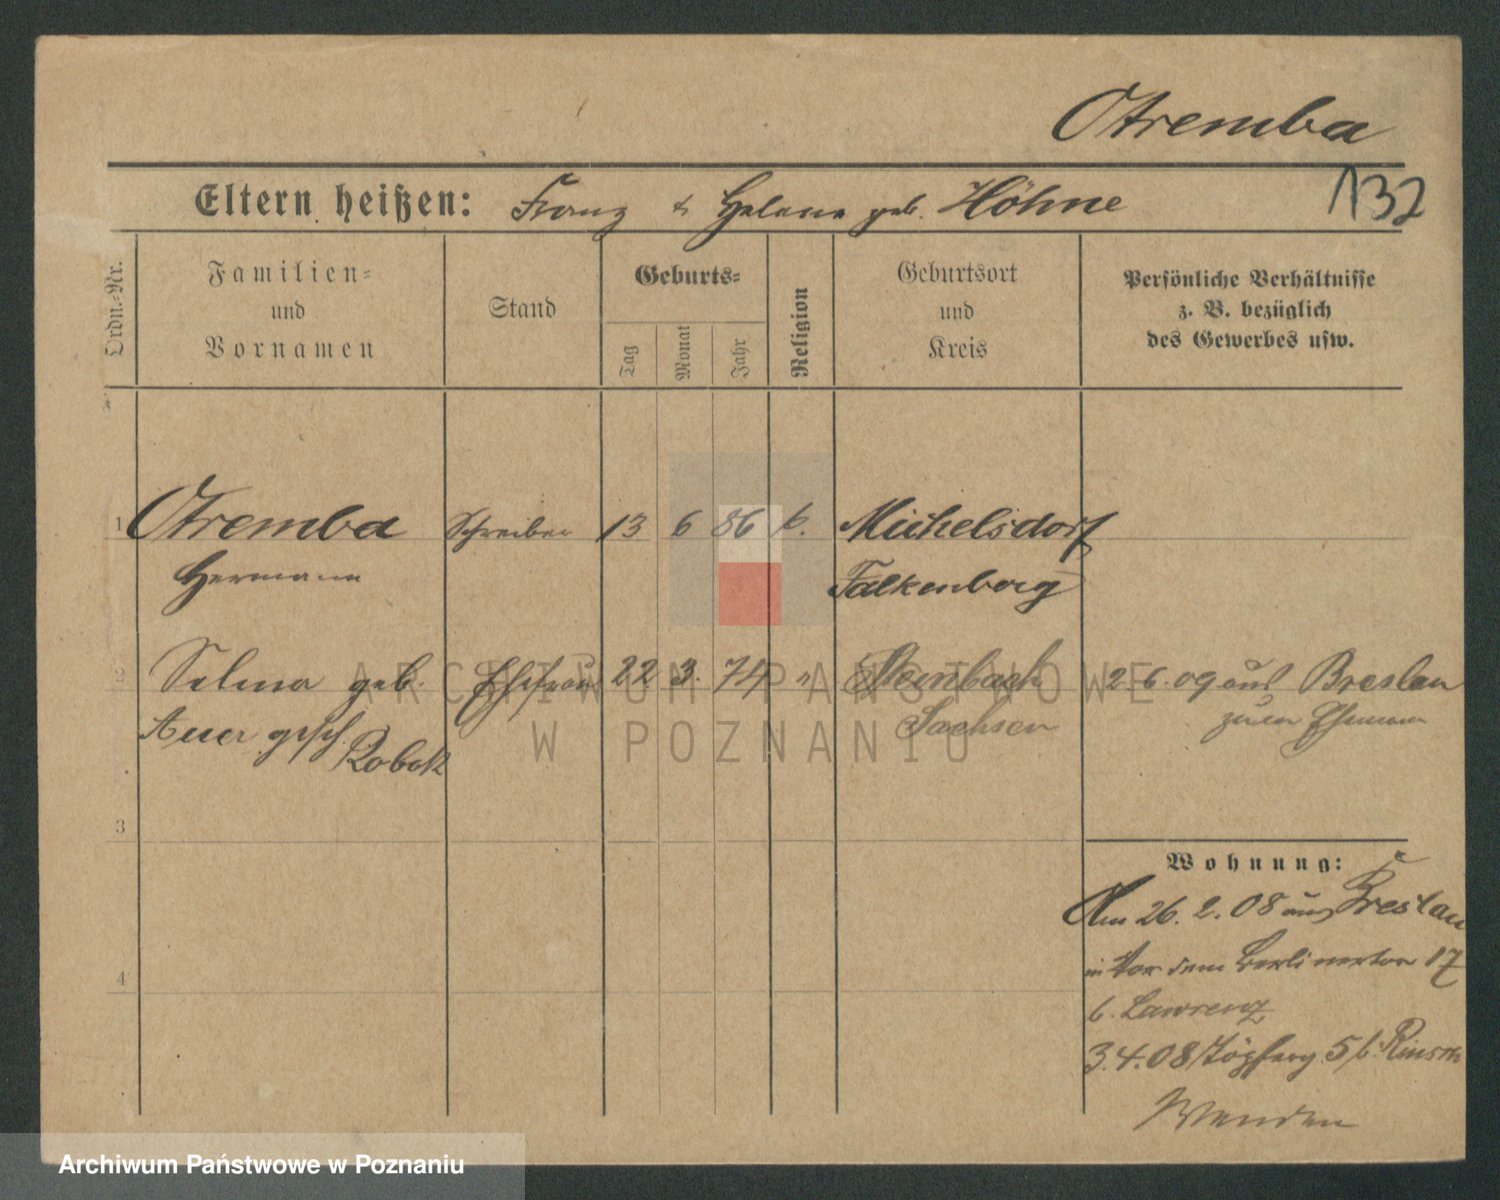 Otremba
132
Eltern heißen: Franz & Helene geb. Höhne
Ordn.-Nr.
Familien-
und
Vornamen
Stand
Geburts-
Tag
Monat
Jahr
Religion
Geburtsort
und
Kreis
Persönliche Verhältnisse
z. B. bezüglich
des Gewerbes usw.
1 Otremba Schreiber 13 6 86 k. Michelsdorf
Hermann Falkenberg
2 Selma geb. Ehefrau 22 3. 74 " Steinbach 2.6.09 aus Breslau
Auer gesch. Sachsen zum Ehemann
Robak
3
Wohnung:
Am 26.2.08 aus Breslau
in Vor dem Berlinertor 17
4
b. Lawrenz
3.4.08 Töpferg. 5 b.
Wenden
ARCHIWUM PAŃSTWOWE
W POZNANIU
Archiwum Państwowe w Poznaniu